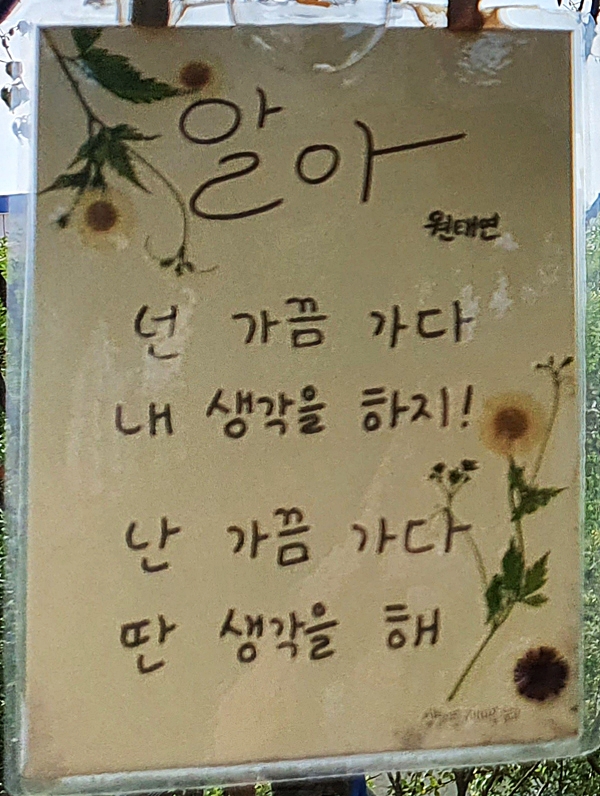 알아
원태연
넌 가끔 가다
내 생각을 하지!
난 가끔 가다
딴 생각을 해